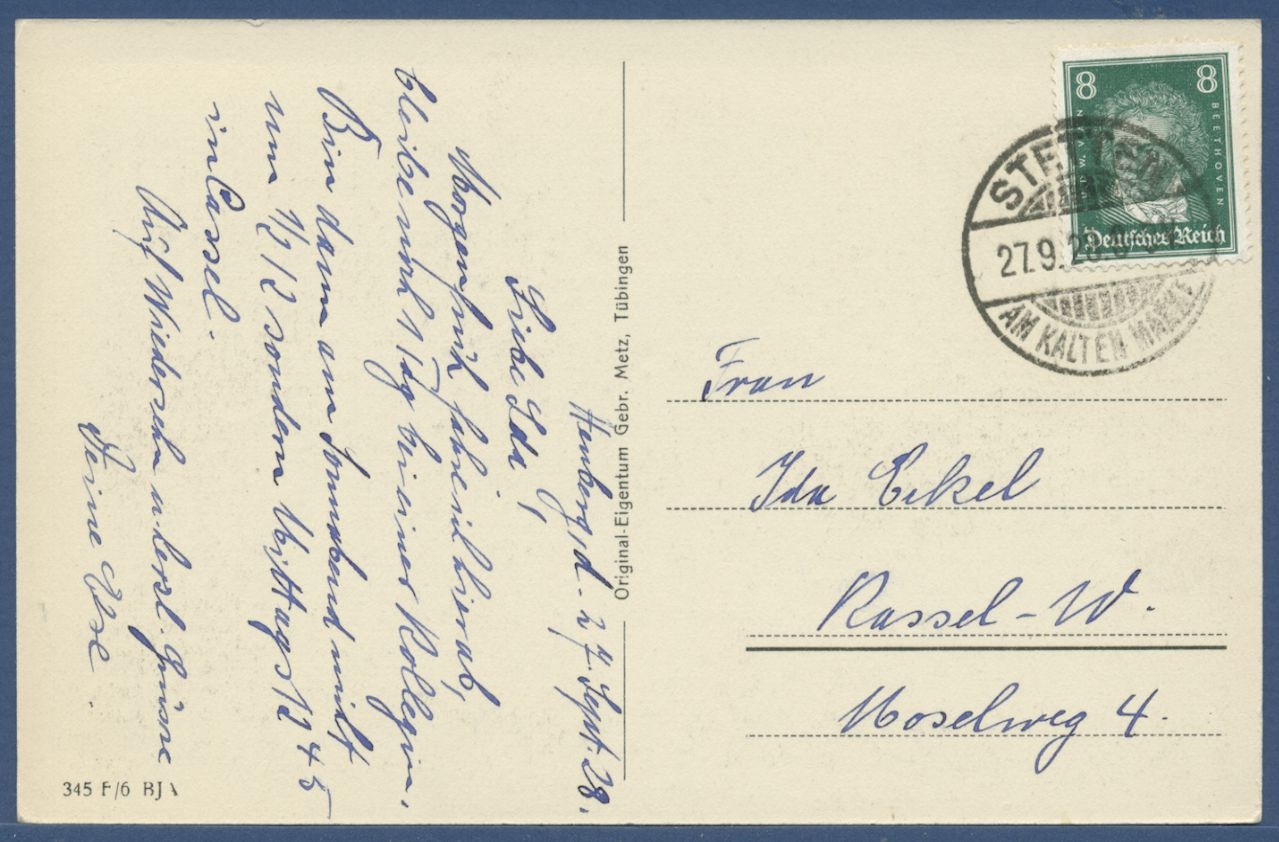 Heuberg, d. 27. Sept. 28.
Liebe Ida,
Morgen früh fahre ich hier ab,
bleibe noch 1 Tag bei einer Kollegin.
Bin dann am Sonnabend nicht
um 1/2 12 sondern Mittags 12 45
in Cassel.
Auf Wiedersehn u. herzl. Grüsse
Deine Else.
345 F/6 BJA
Original-Eigentum Gebr. Metz, Tübingen
8 8
BEETHOVEN
Deutsches Reich
STETTEN
27.9.28.
AM KALTEN MARKT
Frau
Ida Eckel
Kassel-W.
Moselweg 4.